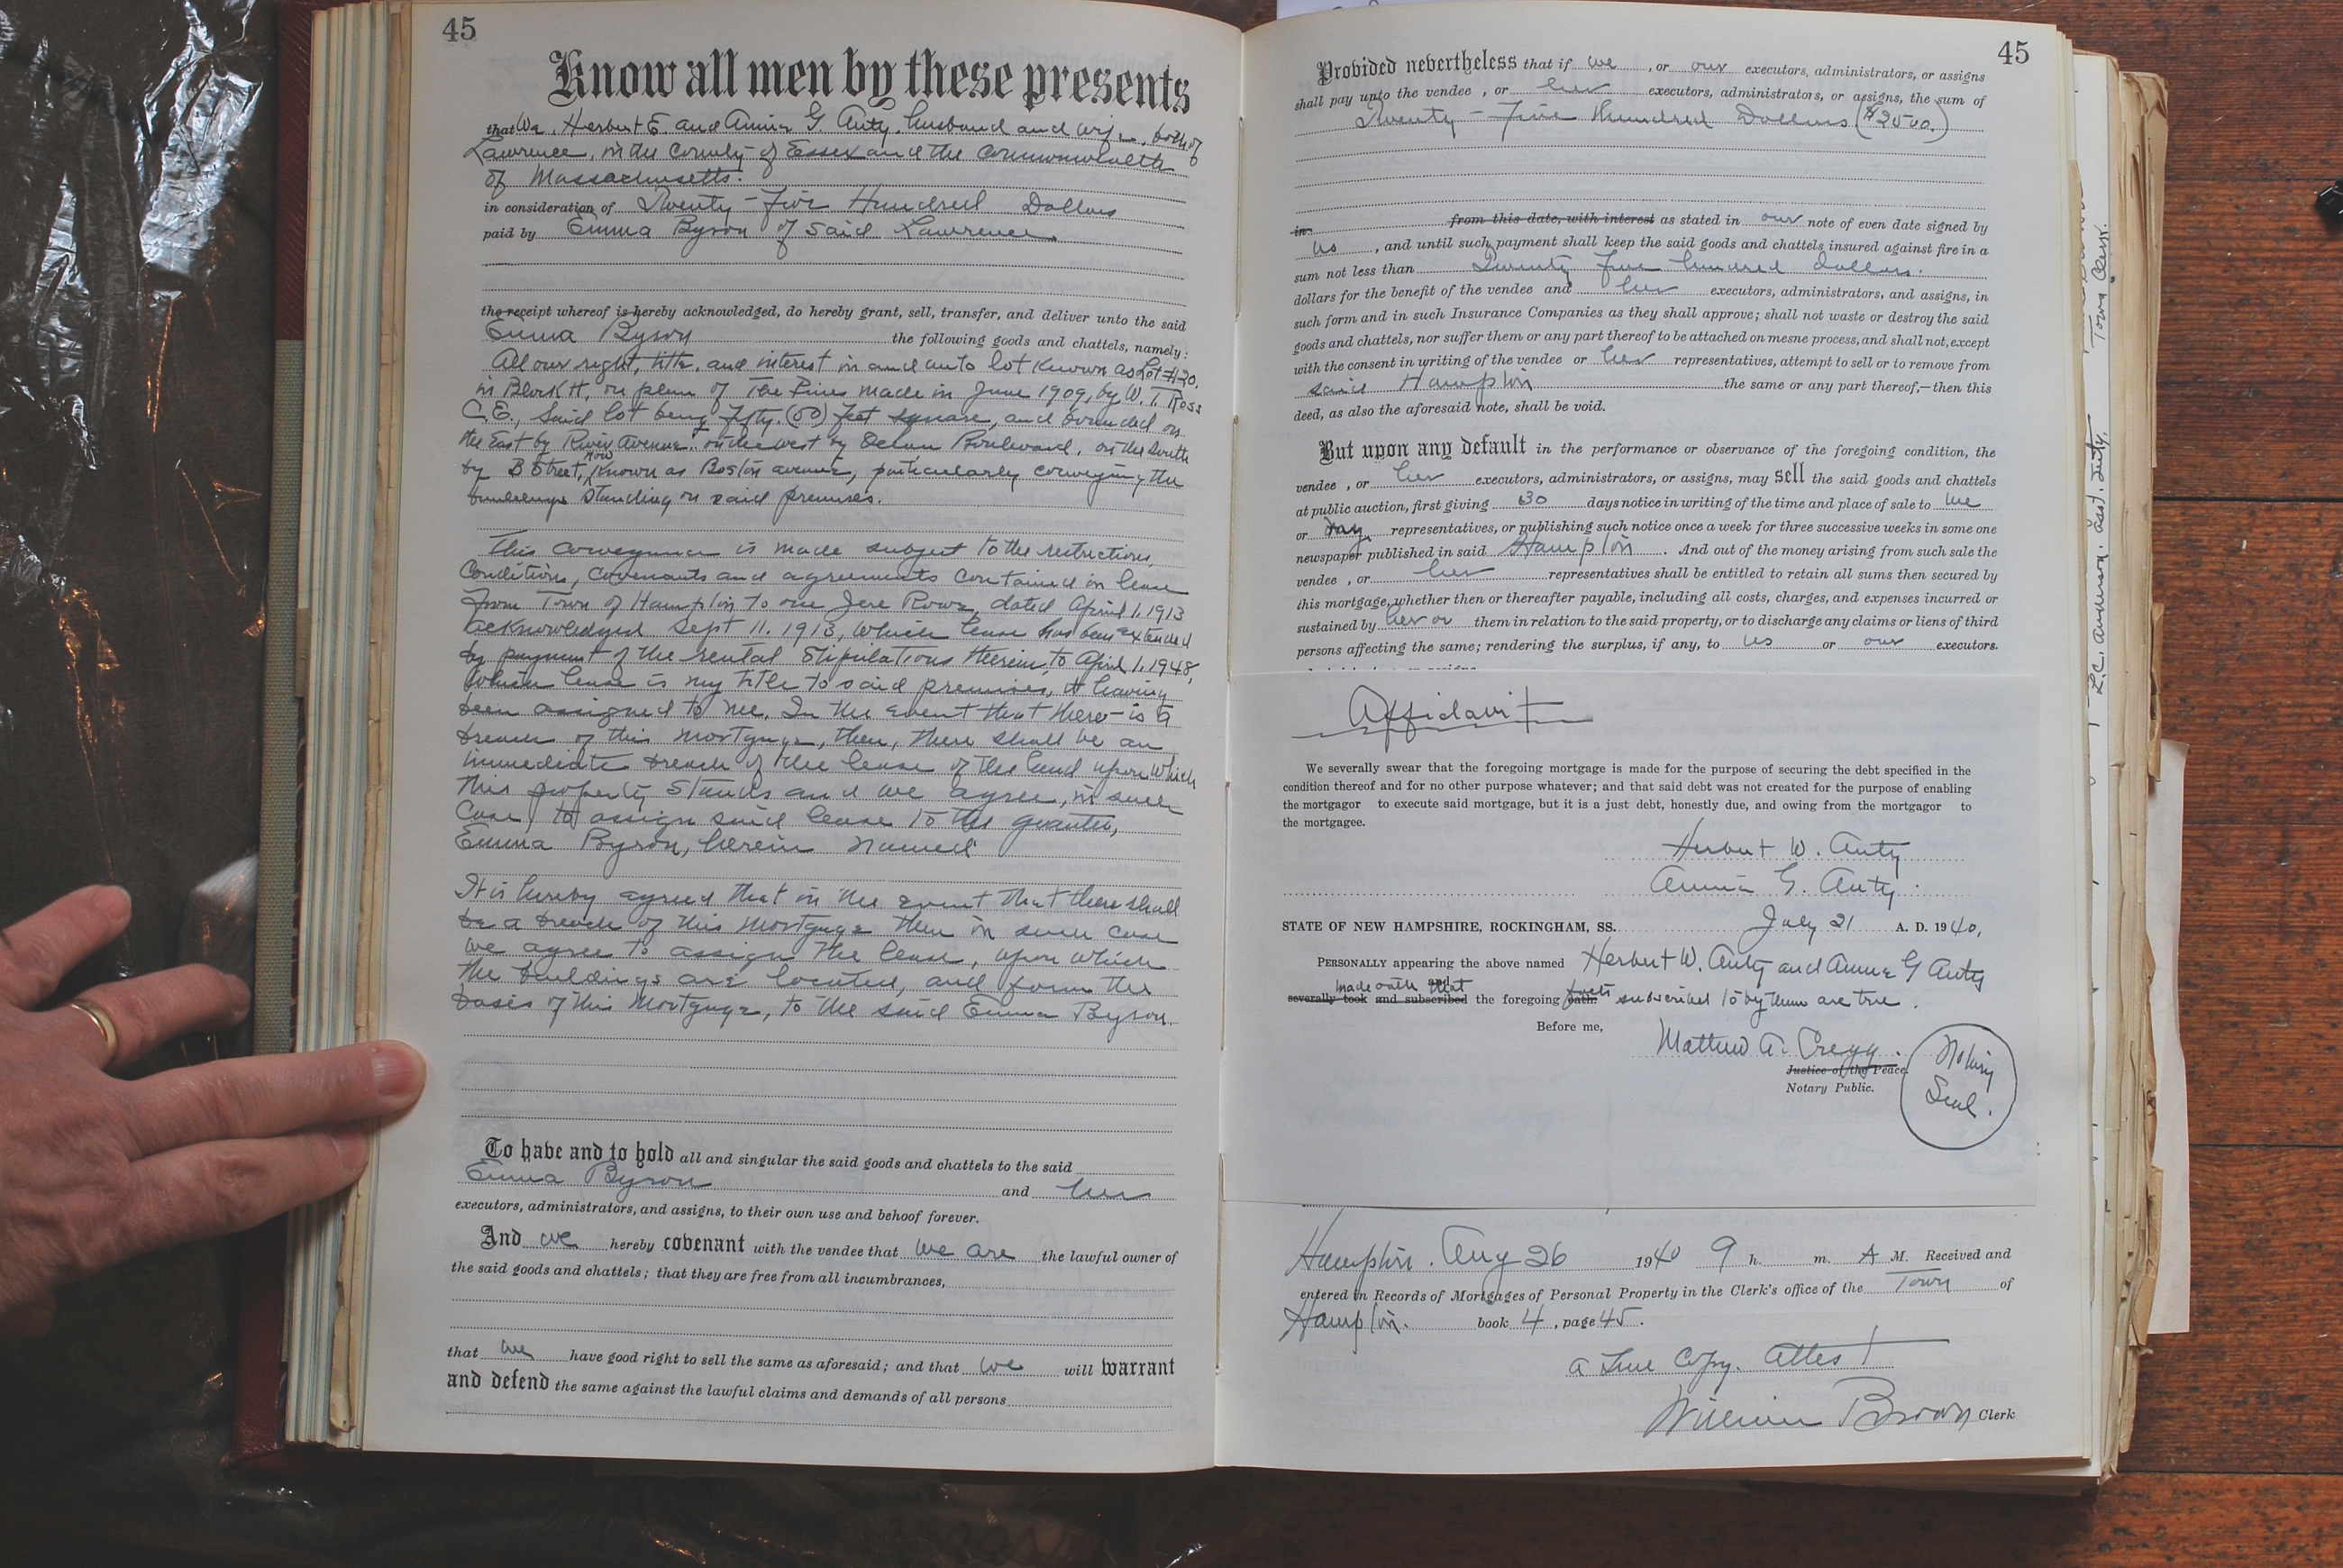 45
Know all men by these presents
that We, Herbert E. and Annie G Auty, husband and wife, both of
Lawrence, in the County of Essex and the Commonwealth
of Massachusetts.
in consideration of Twenty-five Hundred Dollars
paid by Emma Byron of said Lawrence
the receipt whereof is hereby acknowledged, do hereby grant, sell, transfer, and deliver unto the said
Emma Byron the following goods and chattels, namely:
All our right, title, and interest in and unto lot known as Lot #20,
in Block H, on plan of The Pines made in June 1909, by W. T. Ross
C.E., Said lot being fifty (50) feet square, and bounded on
the East by River Avenue, on the west by Ocean Boulevard, on the South
by B Street, now known as Boston avenue, particularly conveying the
buildings standing on said premises.
This conveyance is made subject to the restrictions,
Conditions, covenants and agreements contained in lease
from Town of Hampton to one Jere Rowe, dated April 1, 1913
acknowledged Sept 11. 1913, which lease has been extended
by payment of the rental stipulations therein, to April 1, 1948,
which lease is my title to said premises, it having
been assigned to me. In the event that there is a
breach of this mortgage, then, there shall be an
immediate breach of the lease of the land upon which
this property stands and we agree, in such
Case, to assign said lease to the grantee,
Emma Byron, herein named
It is hereby agreed that in the event that there shall
be a breach of this mortgage then in such case
we agree to assign the lease, upon which
the buildings are located, and form the
basis of this mortgage, to the said Emma Byron.
To have and to hold all and singular the said goods and chattels to the said
Emma Byron and her
executors, administrators, and assigns, to their own use and behoof forever.
And we hereby covenant with the vendee that we are the lawful owner of
the said goods and chattels; that they are free from all incumbrances,
that we have good right to sell the same as aforesaid; and that we will warrant
and defend the same against the lawful claims and demands of all persons
45
Provided nevertheless that if we, or our executors, administrators, or assigns
shall pay unto the vendee, or her executors, administrators, or assigns, the sum of
Twenty-Five Hundred Dollars ($2500.)
in from this date, with interest as stated in our note of even date signed by
us, and until such payment shall keep the said goods and chattels insured against fire in a
sum not less than Twenty five hundred dollars.
dollars for the benefit of the vendee and her executors, administrators, and assigns, in
such form and in such Insurance Companies as they shall approve; shall not waste or destroy the said
goods and chattels, nor suffer them or any part thereof to be attached on mesne process, and shall not, except
with the consent in writing of the vendee or her representatives, attempt to sell or to remove from
said Hampton the same or any part thereof,—then this
deed, as also the aforesaid note, shall be void.
But upon any default in the performance or observance of the foregoing condition, the
vendee, or her executors, administrators, or assigns, may sell the said goods and chattels
at public auction, first giving 30 days notice in writing of the time and place of sale to me
or my representatives, or publishing such notice once a week for three successive weeks in some one
newspaper published in said Hampton. And out of the money arising from such sale the
vendee, or her representatives shall be entitled to retain all sums then secured by
this mortgage, whether then or thereafter payable, including all costs, charges, and expenses incurred or
sustained by her or them in relation to the said property, or to discharge any claims or liens of third
persons affecting the same; rendering the surplus, if any, to us or our executors.
Affidavit
We severally swear that the foregoing mortgage is made for the purpose of securing the debt specified in the
condition thereof and for no other purpose whatever; and that said debt was not created for the purpose of enabling
the mortgagor to execute said mortgage, but it is a just debt, honestly due, and owing from the mortgagor to
the mortgagee.
Herbert W. Auty
Annie G. Auty
STATE OF NEW HAMPSHIRE, ROCKINGHAM, SS. July 21 A. D. 1940,
PERSONALLY appearing the above named Herbert W. Auty and Annie G Auty
made oath that
severally took and subscribed the foregoing oath. facts subscribed to by them are true.
Before me,
Matthew A. Cregg.
Justice of the Peace.
Notary Public.
Notary
Seal.
Hampton. Aug 26 1940 9 h. m. A M. Received and
entered in Records of Mortgages of Personal Property in the Clerk's office of the Town of
Hampton. book 4, page 45.
a True Copy. Attest
William Brown Clerk
Town Clerk.